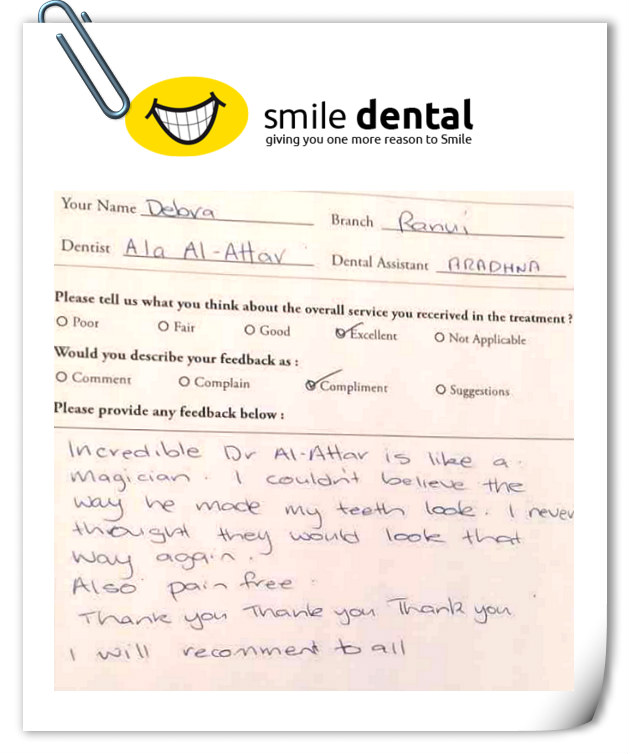 smile dental
giving you one more reason to Smile
Your Name Debra
Branch Ranui
Dentist Ala Al-Attar
Dental Assistant ARADHNA
Please tell us what you think about the overall service you recerived in the treatment ?
Poor Fair Good Excellent Not Applicable
Would you describe your feedback as :
Comment Complain Compliment Suggestions
Please provide any feedback below :
Incredible Dr Al-Attar is like a
magician. I couldn't believe the
way he made my teeth look. I never
thought they would look that
way again.
Also pain free.
Thank you Thank you Thank you.
I will recomment to all